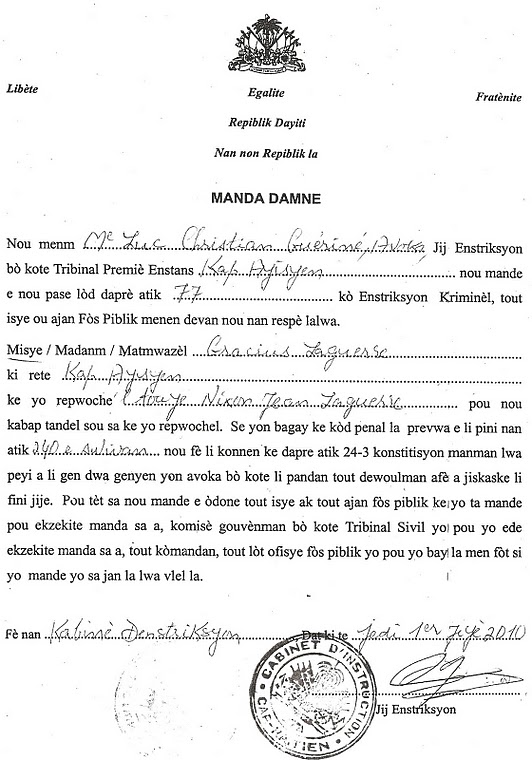 Libète Egalite Fratènite
Repiblik Dayiti
Nan non Repiblik la
MANDA DAMNE
Nou menm Me Luc Christian Guérimé, Avoka Jij Enstriksyon
bò kote Tribinal Premiè Enstans Kap Ayisyen nou mande
e nou pase lòd daprè atik 77 kò Enstriksyon Kriminèl, tout
isye ou ajan Fòs Piblik menen devan nou nan respè lalwa.
Misye / Madanm / Matmwazèl Gracius Laguerre
ki rete Kap Ayisyen
ke yo repwoche Nixon Jean Laguerre pou nou
kabap tandel sou sa ke yo repwochel. Se yon bagay ke kòd penal la prevwa e li pini nan
atik 240 e sulivan nou fè li konnen ke dapre atik 24-3 konstitisyon manman lwa
peyi a li gen dwa genyen yon avoka bò kote li pandan tout dewoulman afè a jiskaske li
fini jije. Pou tèt sa nou mande e òdone tout isye ak tout ajan fòs piblik ke yo ta mande
pou ekzekite manda sa a, komisè gouvènman bò kote Tribinal Sivil yo pou yo ede
ekzekite manda sa a, tout kòmandan, tout lòt ofisye fòs piblik yo pou yo bay la men fòt si
yo mande yo sa jan la lwa vlel la.
Fè nan Kabinè Denstriksyon, Dat ki te jedi 1er Jiyè 2010
CABINET D'INSTRUCTION
CAP-HAITIEN
Jij Enstriksyon